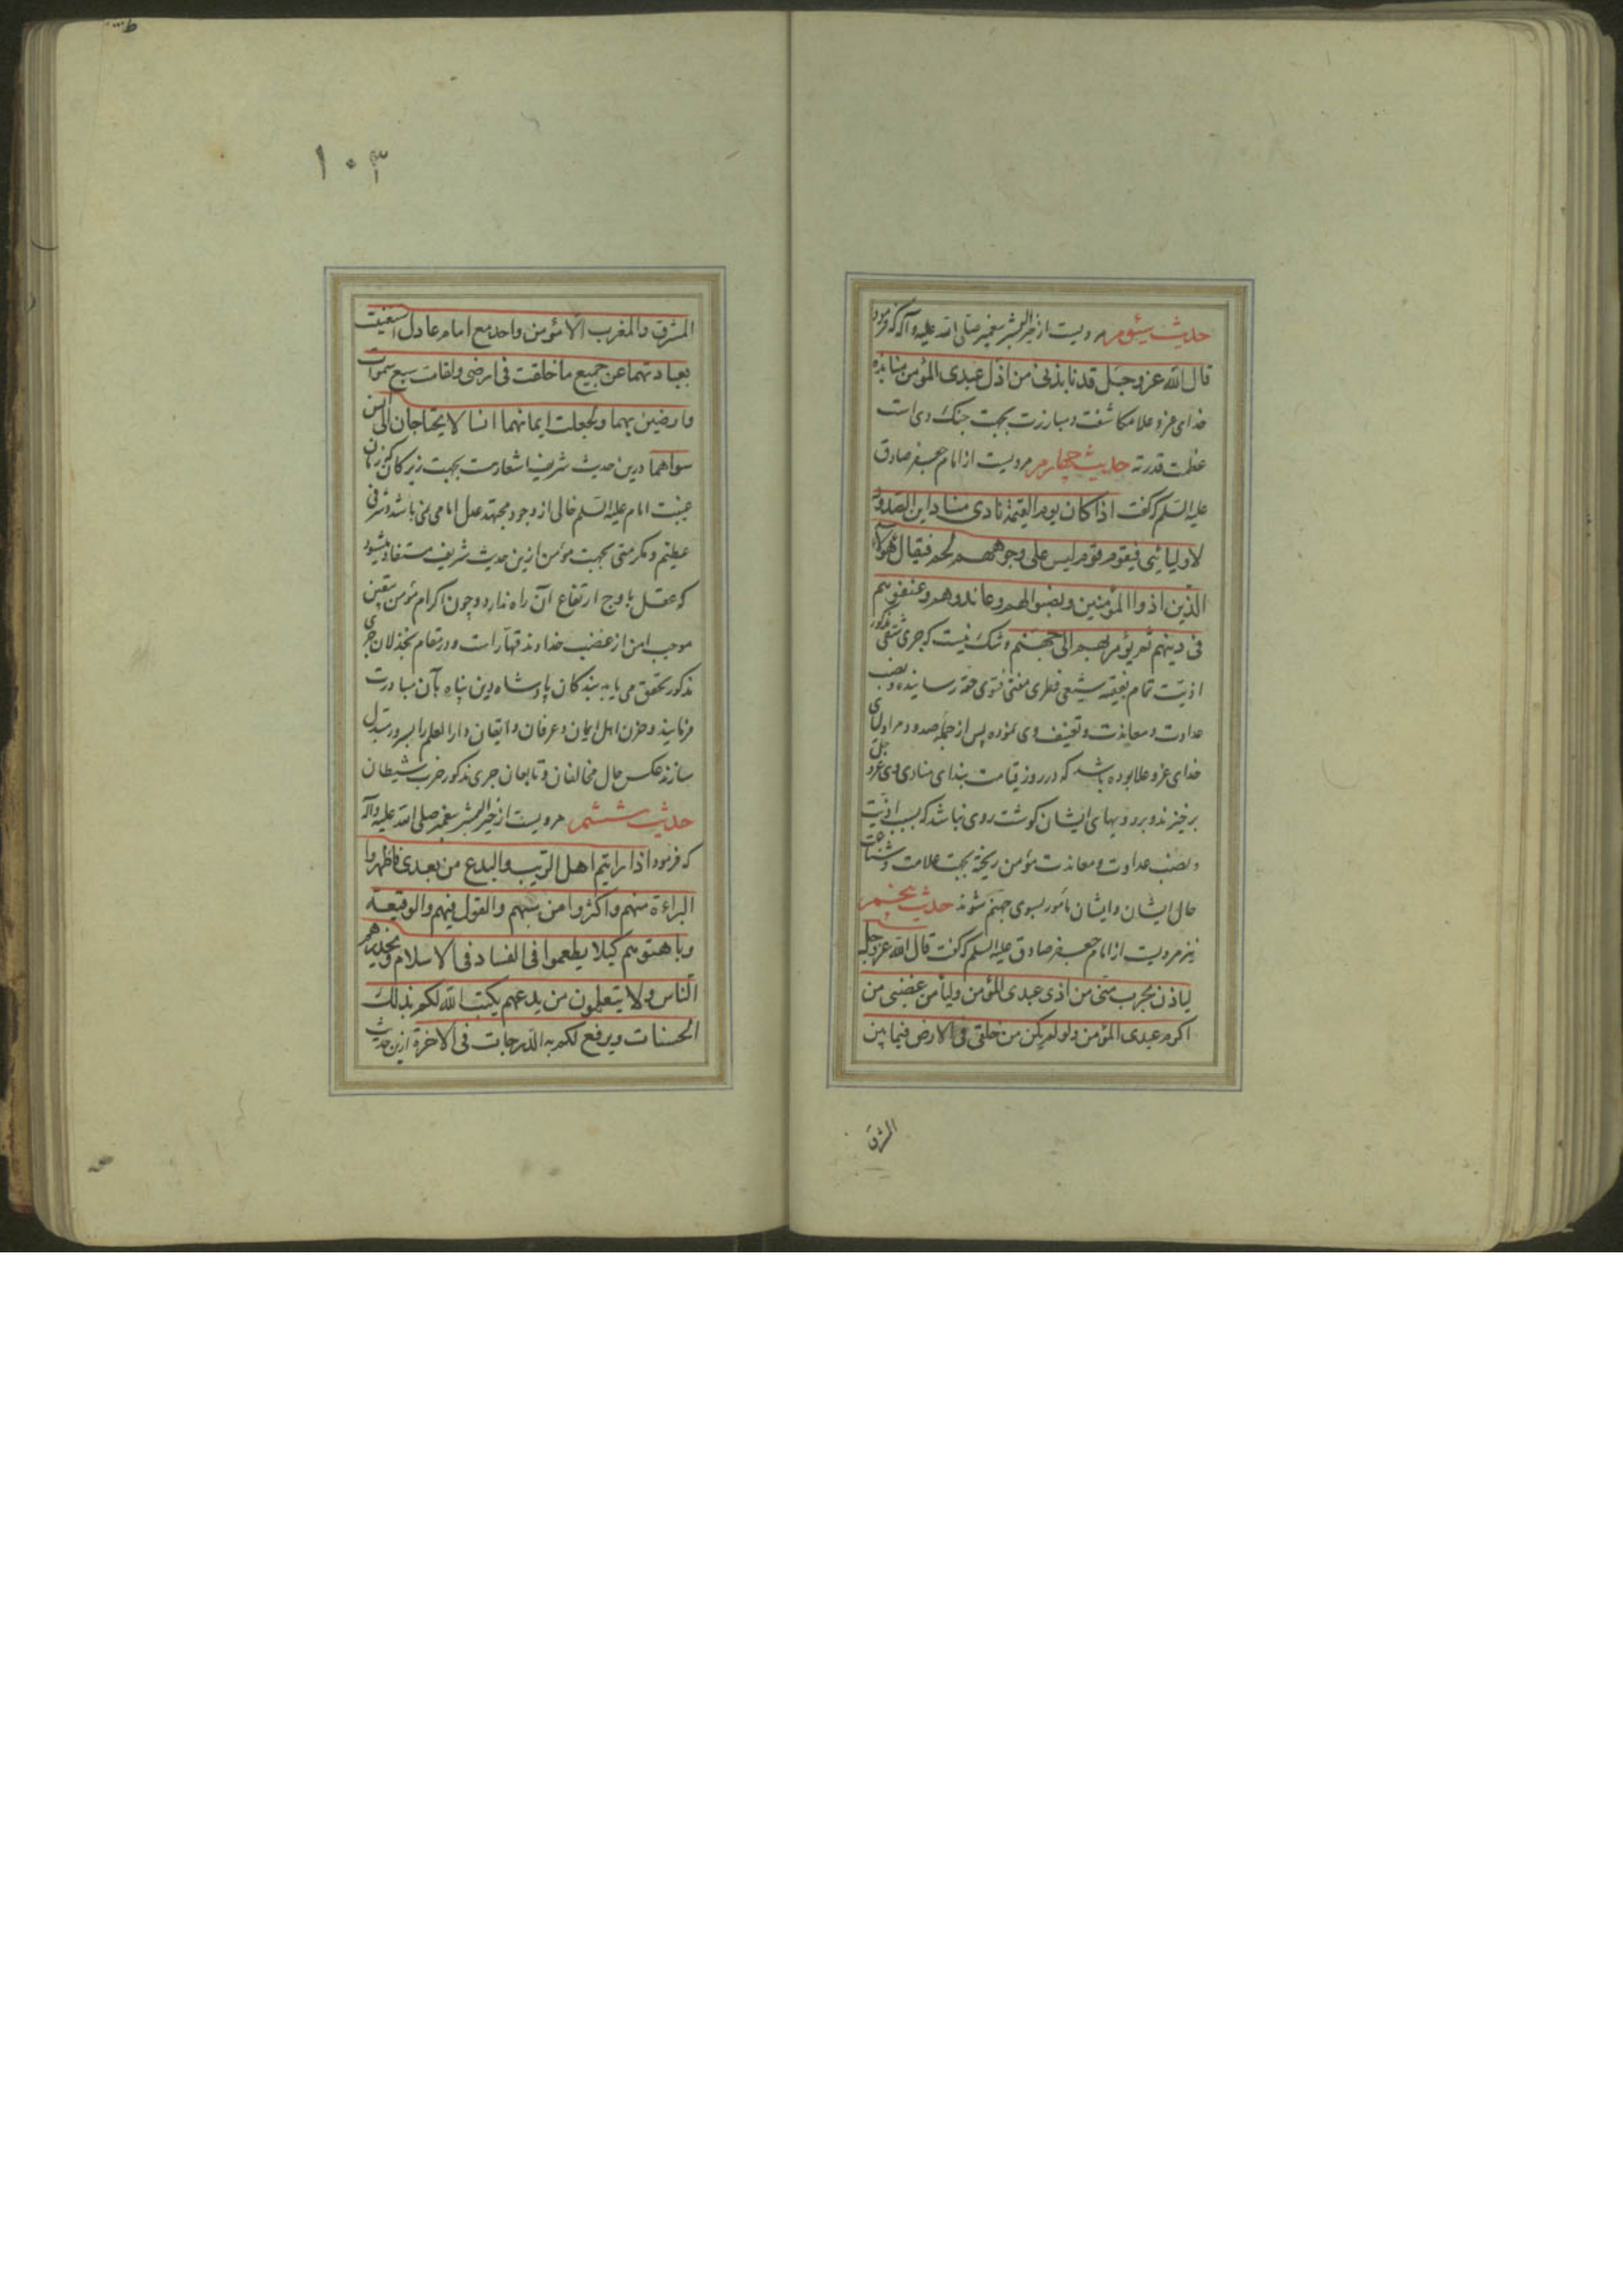 حدیث سیّوم مرویست از خیر البشر پیغمبر صلی الله علیه وآله که فرمود
قال الله عز وجل قد نابذنی من اذل عبدی المؤمن منابذه
خدای عز و علا مکاشفت و مبارزت بجهت جنک وی است
عظمت قدرته حدیث چهارم مرویست از امام جعفر صادق
علیه السلم که گفت اذا کان یوم القیمة نادی مناد این الصدود
لاولیائی فیقوم قوم لیس علی وجوههم لحم فیقال هؤلاء
الذین اذوا المؤمنین ونصبوا لهم وعاندوهم وعنفوهم
فی دینهم ثم یؤمر بهم الی جهنم و شک نیست که جری شقی مذکور
اذیت تمام بفقیه شیعی فطری مفتی فتوی حقه رسانیده و نصب
عداوت و معاندت و تعنیف وی نموده پس از جمله صدود مر اولیای
خدای عز و علا بوده باشد که در روز قیامت بندای منادی وی عز و جل
برخیزند و بر رویهای ایشان کوشت روی نباشد که بسبب اذیت
و نصب عداوت و معاندت مؤمن ریخته بجهت علامت و شناعت
حال ایشان و ایشان مامور بسوی جهنم شوند حدیث پنجم
نیز مرویست از امام جعفر صادق علیه السلم که گفت قال الله عز وجل
لیاذن بحرب منی من اذی عبدی المؤمن ولیأمن غضبی من
اکرم عبدی المؤمن ولو لم یکن من خلقی فی الارض فیما بین
المشرق
١٠٣
المشرق والمغرب الا مؤمن واحد مع امام عادل استغنیت
بعبادتهما عن جمیع ما خلقت فی ارضی ولقامت سبع سموات
وارضین بهما ولجعلت ایمانهما انسا لا یحتاجان الی انس
سواهما درین حدیث شریف اشعارست بجهت زیرکان که زمان
غیبت امام علیه السلم خالی از وجود مجتهد عدل امامی نمی باشد و شرفی
عظیم و مکرمتی بجهت مؤمن ازین حدیث شریف مستفاد میشود
که عقل باوج ارتفاع آن راه ندارد و چون اکرام مؤمن متقین
موجب امن از غضب خداوند قهار است و درینمقام بخذلان جری
مذکور تحقق می یابد بندکان پادشاه دین پناه بآن مبادرت
فرمایند و حزن اهل ایمان و عرفان و ایقان دار العلم را بسرور مبدل
سازند عکس حال مخالفان و تابعان جری مذکور حزب شیطان
حدیث ششم مرویست از خیر البشر پیغمبر صلی الله علیه وآله
که فرمود اذا رایتم اهل الریب والبدع من بعدی فاظهروا
البراءة منهم واکثروا من سبهم والقول فیهم والوقیعة
وباهتوهم کیلا یطعموا فی الفساد فی الاسلام ویحذرهم
الناس ولا یتعلمون من بدعهم یکتب الله لکم بذلک
الحسنات ویرفع لکم به الدرجات فی الاخرة ازین حدیث